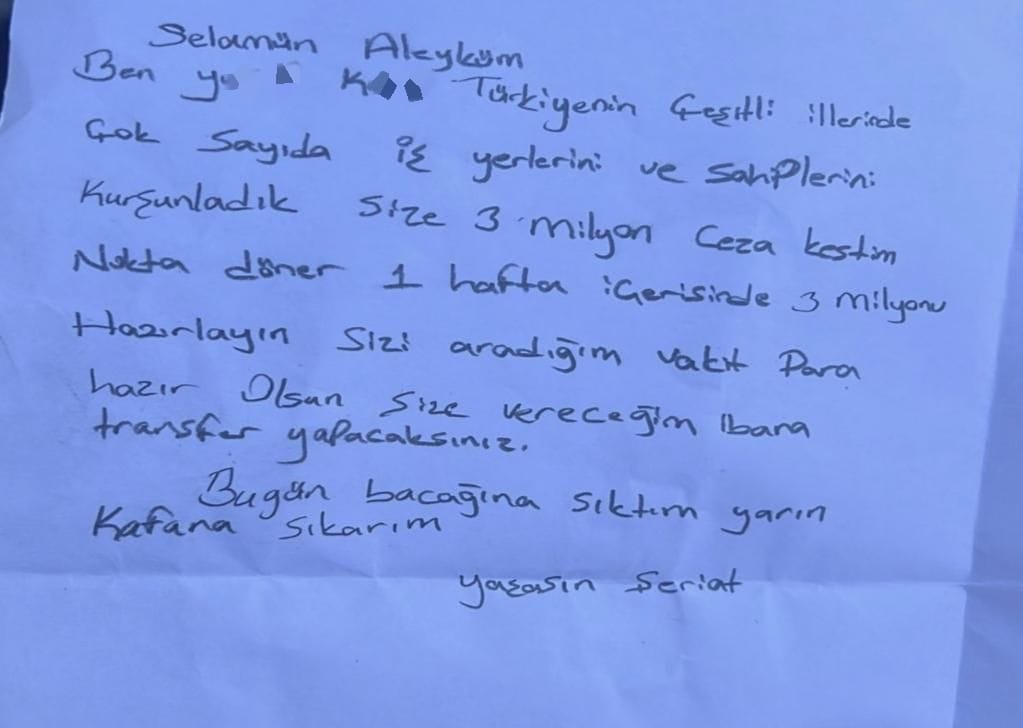 Selamün Aleyküm
Ben Türkiyenin Çeşitli illerinde
Çok Sayıda iş yerlerini ve sahiplerini
Kurşunladık size 3 milyon Ceza kestim
Nokta döner 1 hafta içerisinde 3 milyonu
Hazırlayın Sizi aradığım vakit Para
hazır Olsun Size vereceğim Ibana
transfer yapacaksınız.
Bugün bacağına sıktım yarın
Kafana sıkarım
yaşasın Şeriat